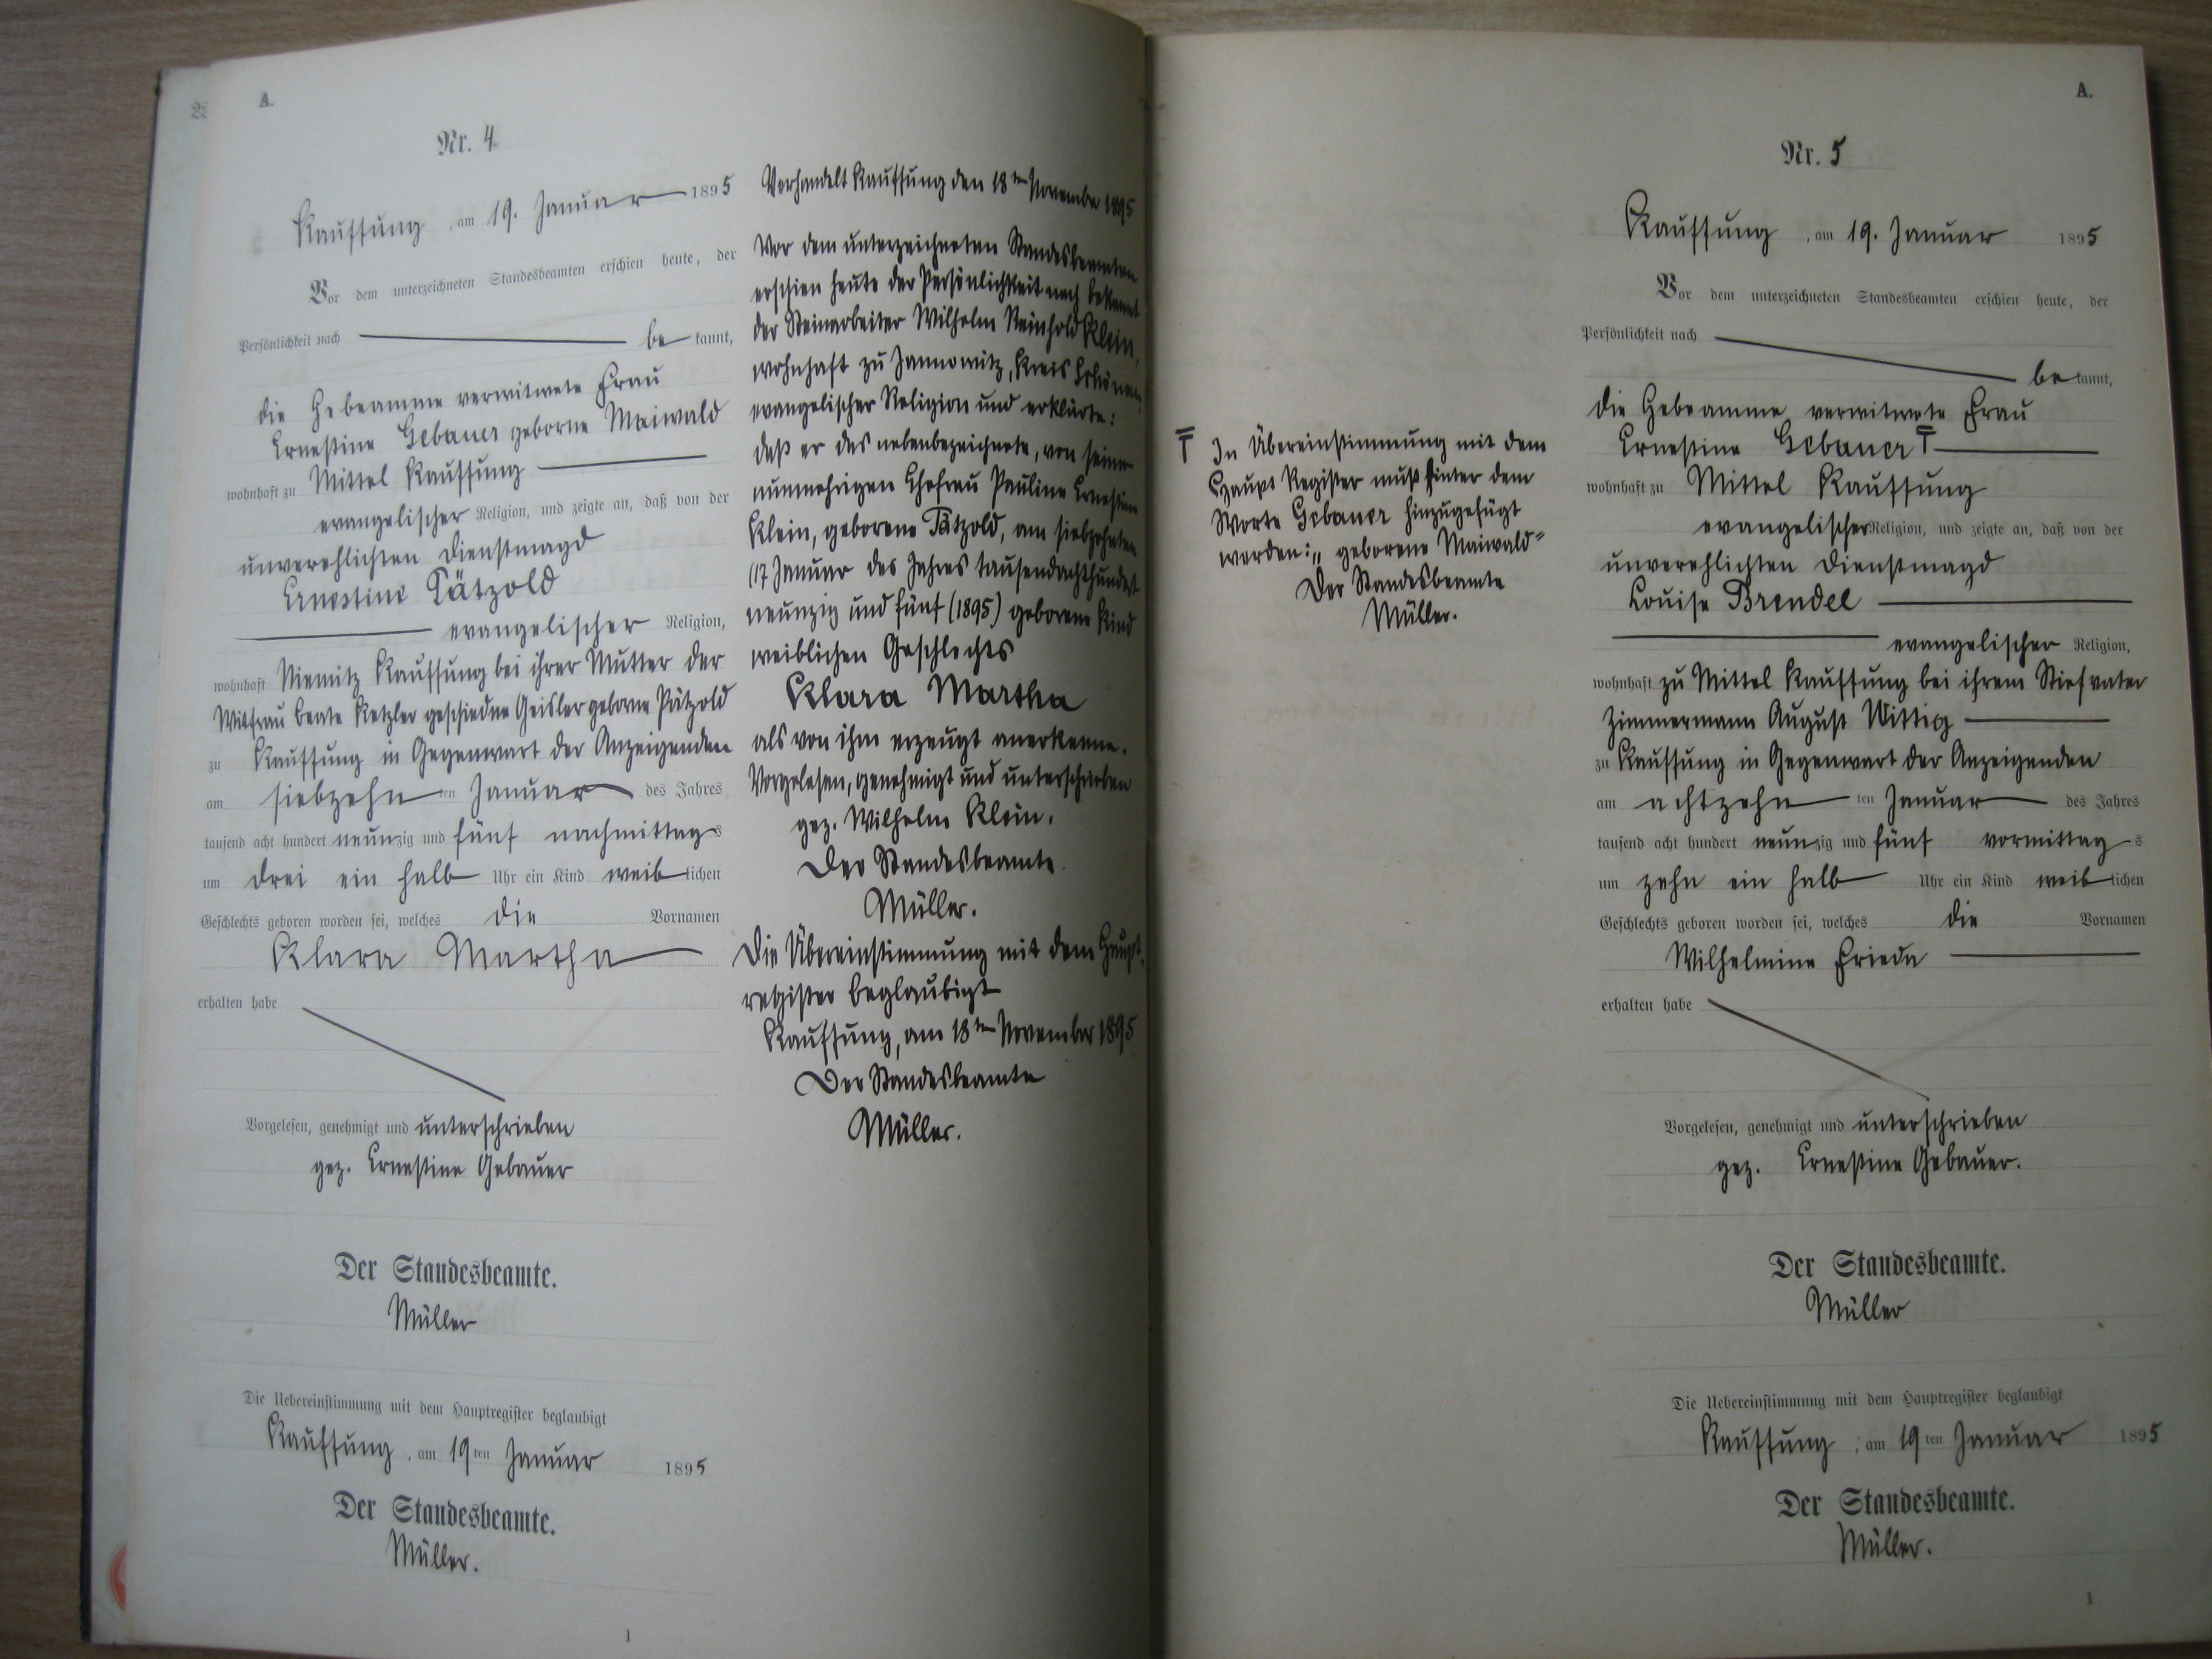 A.
Nr. 4
Kauffung, am 19. Januar 1895
Vor dem unterzeichneten Standesbeamten erschien heute, der
Persönlichkeit nach be kannt,
die Hebeamme verwitwete Frau
Ernestine Gebauer geborne Maiwald
wohnhaft zu Mittel Kauffung
evangelischer Religion, und zeigte an, daß von der
unverehlichten Dienstmagd
Ernestine Pätzold
evangelischer Religion,
wohnhaft Niemitz Kauffung bei ihrer Mutter der
Witfrau Beate Ketzler geschiedne Geisler geborne Pätzold
zu Kauffung in Gegenwart der Anzeigenden
am siebzehn ten Januar des Jahres
tausend acht hundert neunzig und fünf nachmittags
um drei ein halb Uhr ein Kind weiblichen
Geschlechts geboren worden sei, welches die Vornamen
Klara Martha
erhalten habe
Vorgelesen, genehmigt und unterschrieben
gez. Ernestine Gebauer
Der Standesbeamte.
Müller
Die Uebereinstimmung mit dem Hauptregister beglaubigt
Kauffung, am 19ten Januar 1895
Der Standesbeamte.
Müller.
1
Verhandelt Kauffung den 18ten November 1895
Vor dem unterzeichneten Standesbeamten
erschien heute der Persönlichkeit nach bekannt
der Steinarbeiter Wilhelm Reinhold Klein,
wohnhaft zu Jannowitz, Kreis Schönau,
evangelischer Religion und erklärte:
daß er das nebenbezeichnete, von seiner
nunmehrigen Ehefrau Pauline Ernestine
Klein, geborene Pätzold, am siebzehnten
(17 Januar des Jahres tausendachthundert
neunzig und fünf (1895) geborene Kind
weiblichen Geschlechts
Klara Martha
als von ihm erzeugt anerkenne.
Vorgelesen, genehmigt und unterschrieben
gez. Wilhelm Klein.
Der Standesbeamte.
Müller.
Die Übereinstimmung mit dem Haupt-
register beglaubigt
Kauffung, am 18ten November 1895
Der Standesbeamte
Müller.
A.
Nr. 5
Kauffung, am 19. Januar 1895
Vor dem unterzeichneten Standesbeamten erschien heute, der
Persönlichkeit nach
be kannt,
die Hebeamme verwitwete Frau
Ernestine Gebauer ₸
wohnhaft zu Mittel Kauffung
evangelischer Religion, und zeigte an, daß von der
unverehlichten Dienstmagd
Louise Brendel
evangelischer Religion,
wohnhaft zu Mittel Kauffung bei ihrem Stiefvater
Zimmermann August Wittig
zu Kauffung in Gegenwart der Anzeigenden
am achtzehn ten Januar des Jahres
tausend acht hundert neunzig und fünf vormittags
um zehn ein halb Uhr ein Kind weiblichen
Geschlechts geboren worden sei, welches die Vornamen
Wilhelmine Frieda
erhalten habe
Vorgelesen, genehmigt und unterschrieben
gez. Ernestine Gebauer.
Der Standesbeamte.
Müller
Die Uebereinstimmung mit dem Hauptregister beglaubigt
Kauffung, am 19ten Januar 1895
Der Standesbeamte.
Müller.
1
₸ In Übereinstimmung mit dem
Haupt Register muß hinter dem
Worte Gebauer hinzugefügt
werden: „geborene Maiwald"
Der Standesbeamte
Müller.